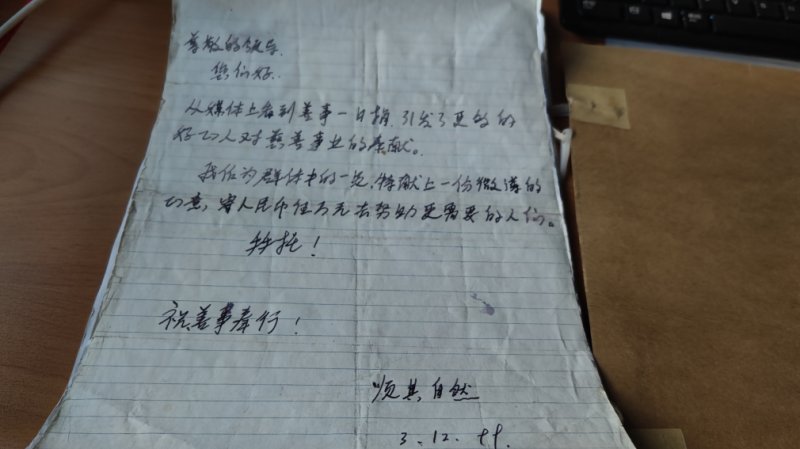 尊敬的领导.
您们好.
从媒体上看到善事一日捐,引发了更多的
好心人对慈善事业的奉献。
我作为群体中的一员,特献上一份微薄的
心意,寄人民币伍万元去帮助更需要的人们。
拜托!
祝善事奉行!
顺其自然
3.12.